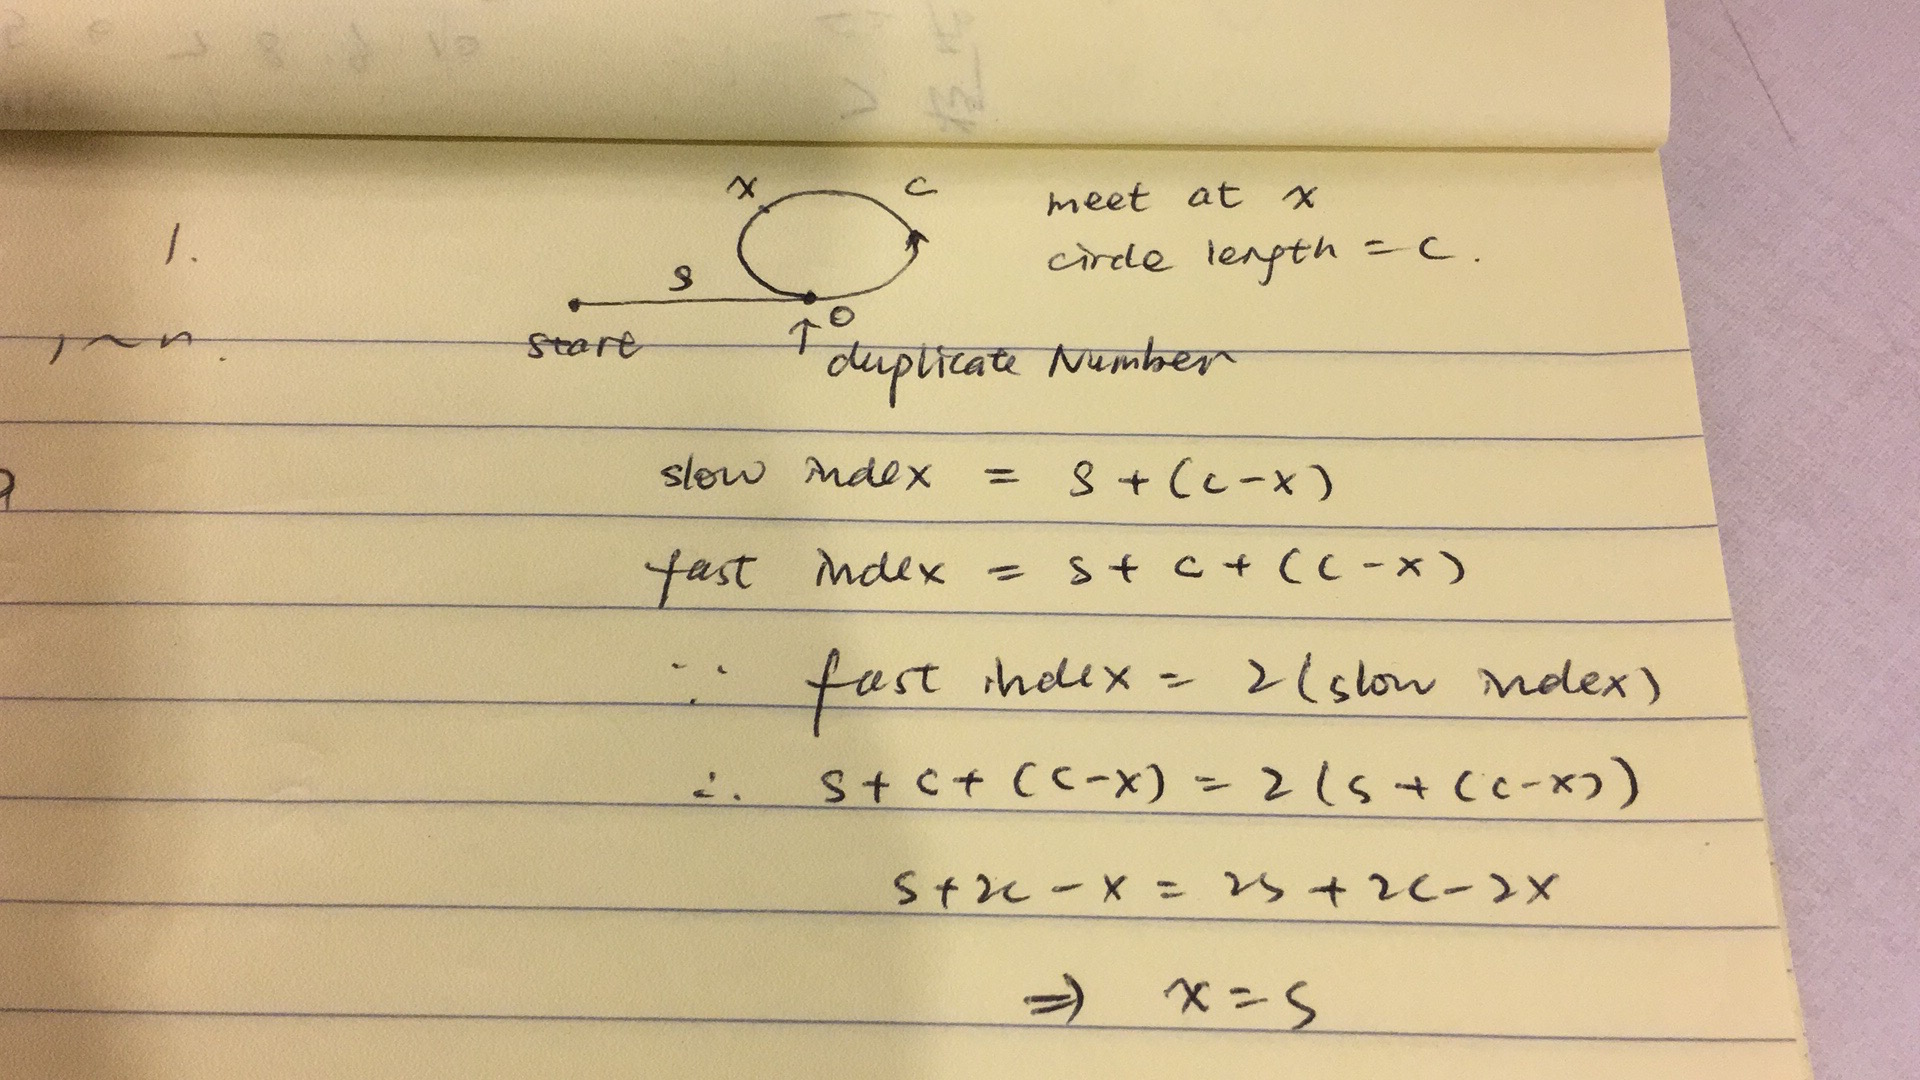 1.
1~n.
x c
s
start
↑ 0
duplicate Number
meet at x
circle length = c.
slow index = s + (c-x)
fast index = s + c + (c-x)
∵ fast index = 2(slow index)
∴ s + c + (c-x) = 2(s + (c-x))
s + 2c - x = 2s + 2c - 2x
⇒ x = s